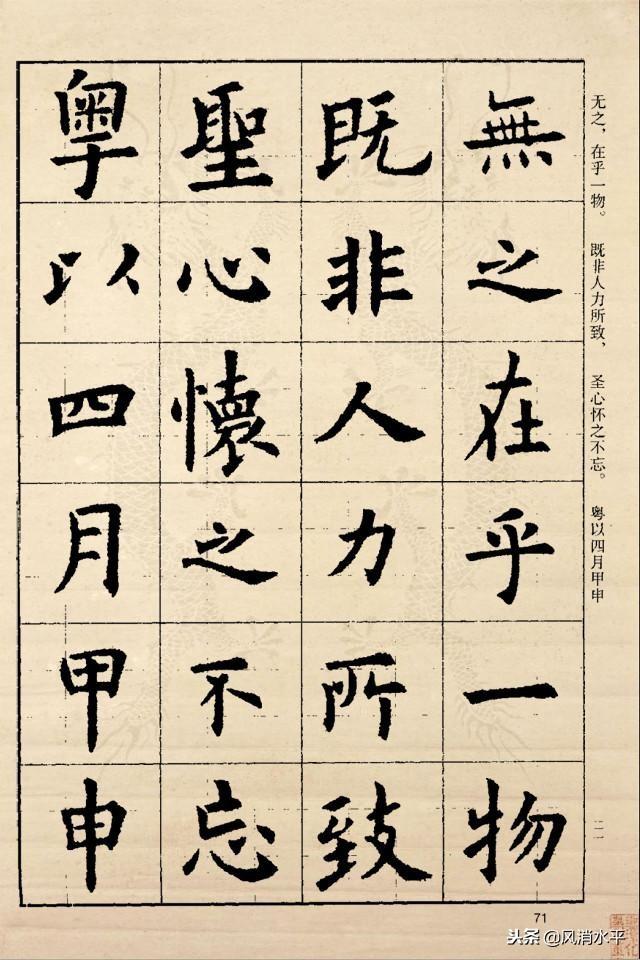 無之在乎一物
既非人力所致
聖心懷之不忘
粵以四月甲申
无之，在乎一物。 既非人力所致， 圣心怀之不忘。 粤以四月甲申
二一
71
头条 @风消水平